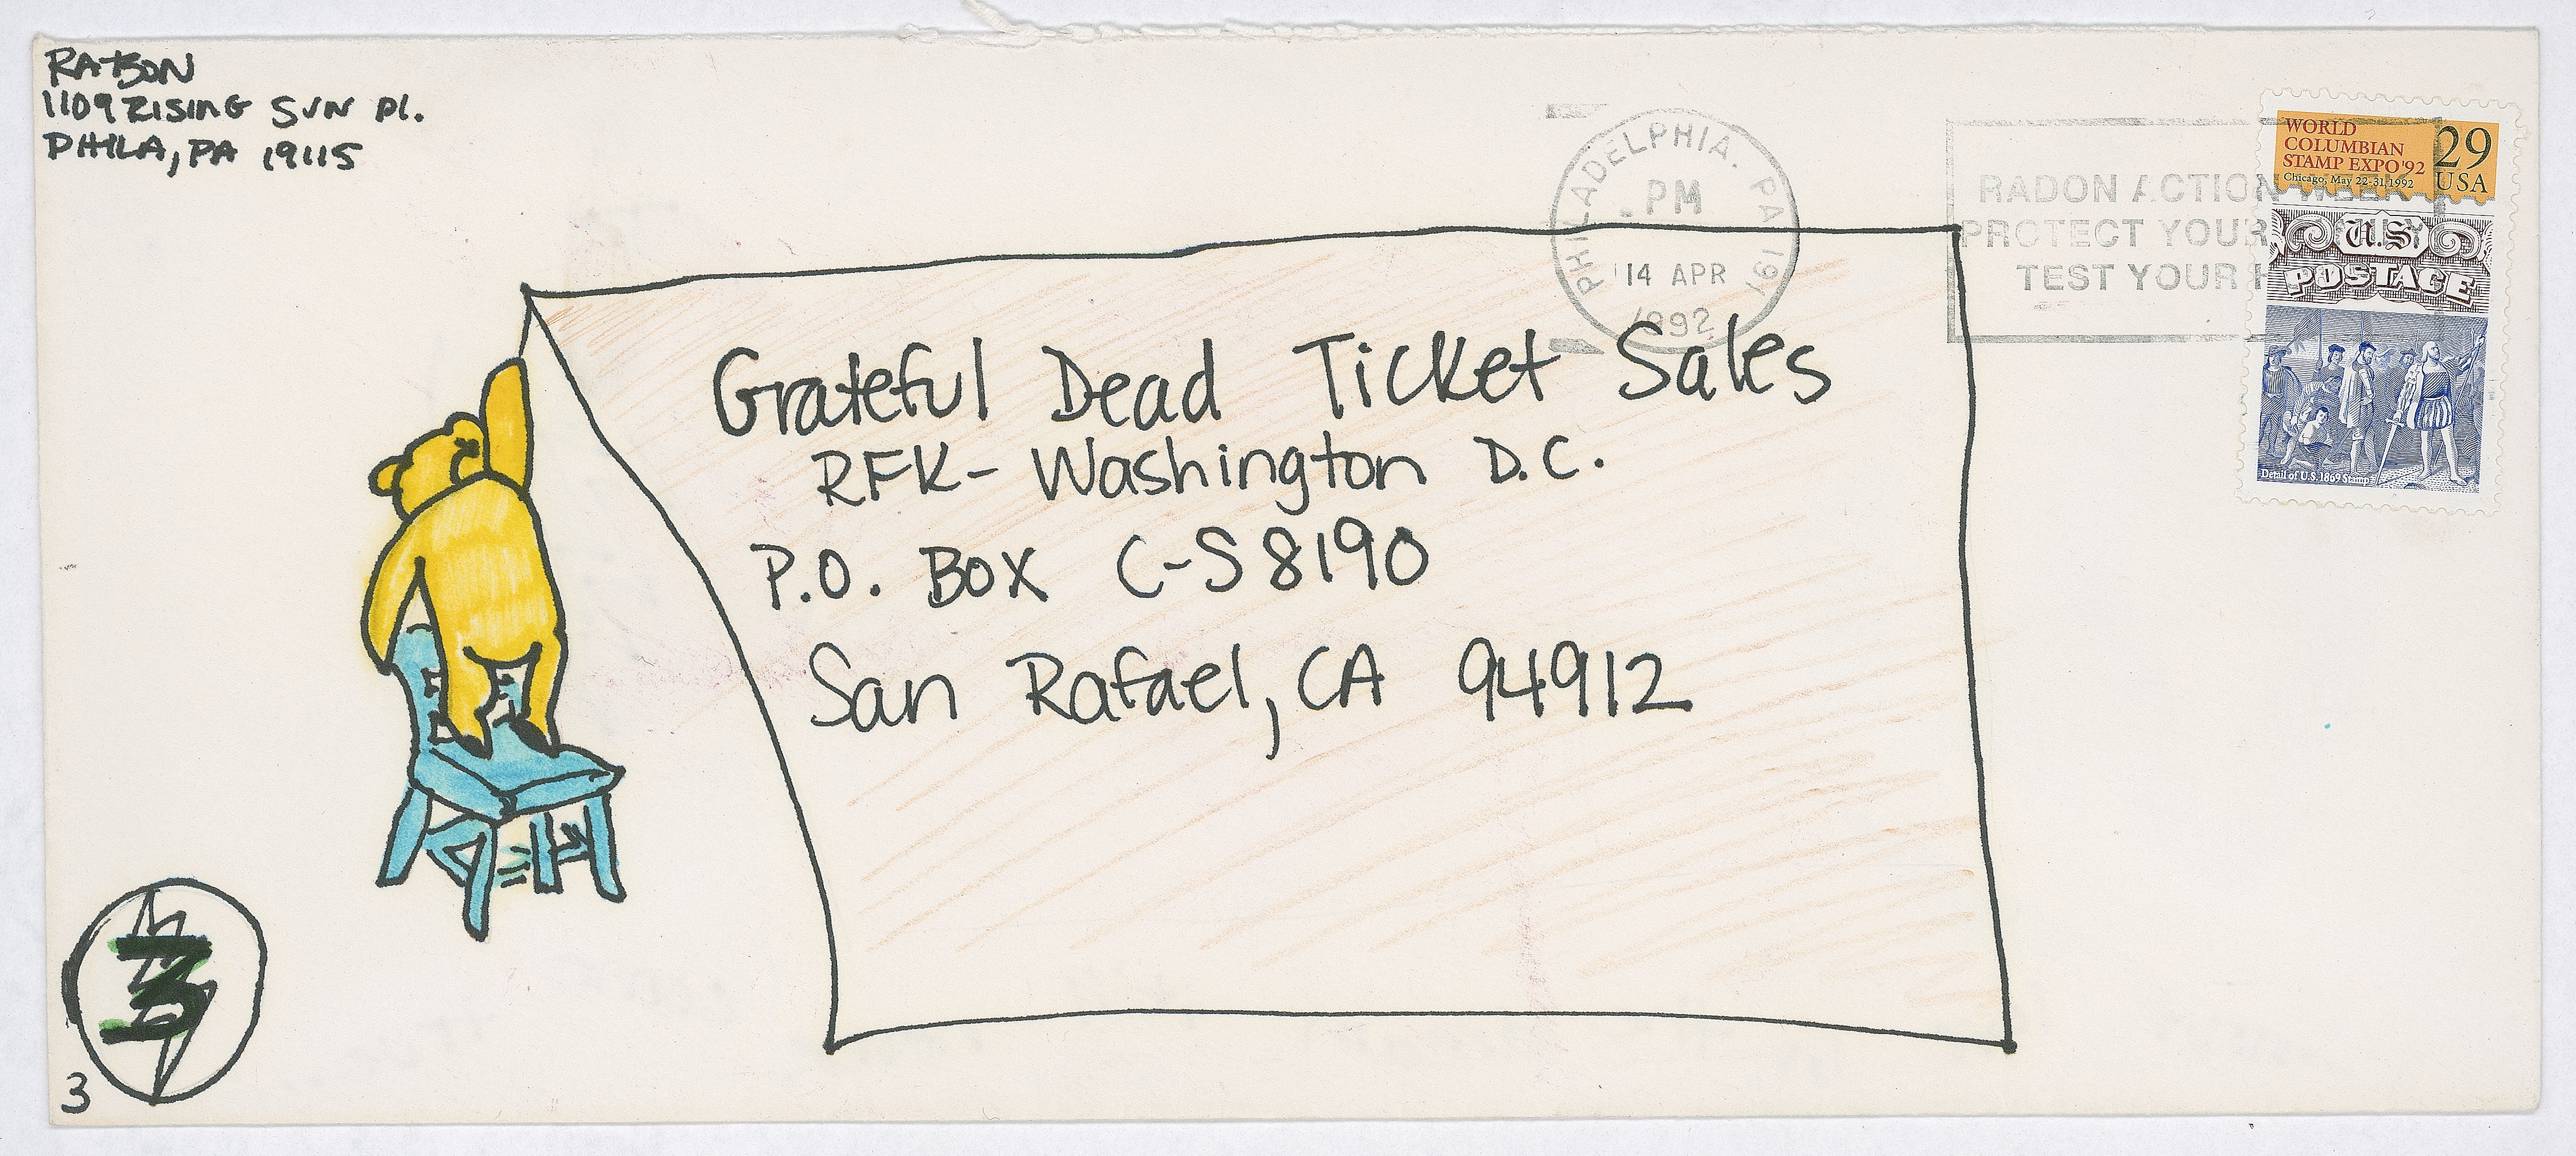 RATSON
1109 RISING SUN Pl.
PHILA, PA 19115
PHILADELPHIA. PA 191
PM
14 APR
1992
RADON ACTION WEEK
PROTECT YOUR FAMILY
TEST YOUR H
WORLD
COLUMBIAN
STAMP EXPO'92
Chicago, May 22-31, 1992
29
USA
U.S.
POSTAGE
Detail of U.S. 1869 Stamp
Grateful Dead Ticket Sales
RFK- Washington D.C.
P.O. Box C-S 8190
San Rafael, CA 94912
3
3